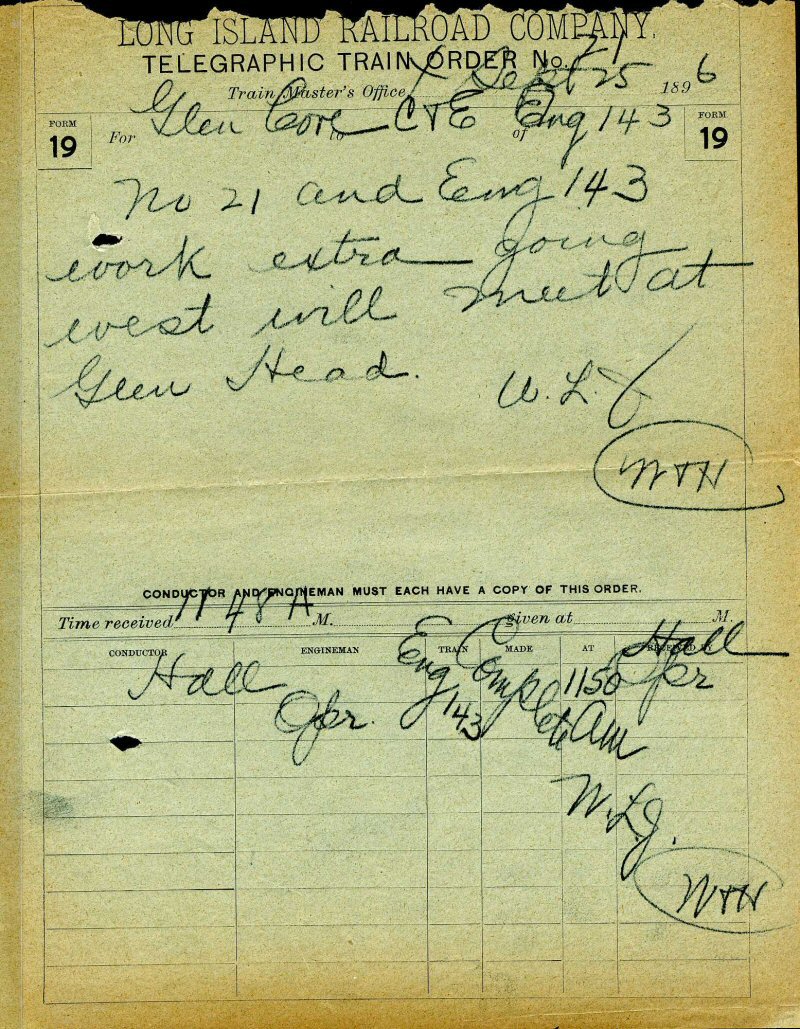 LONG ISLAND RAILROAD COMPANY.
TELEGRAPHIC TRAIN ORDER No. 21
Train Master's Office Sept 25 1896
FORM 19
For Glen Cove to C & E of Eng 143
FORM 19
No 21 and Eng 143
work extra going
west will meet at
Glen Head.
W.L.J
W+H
CONDUCTOR AND ENGINEMAN MUST EACH HAVE A COPY OF THIS ORDER.
Time received 11 48 A M. given at M.
CONDUCTOR ENGINEMAN TRAIN MADE AT RECEIVED BY
Hall Opr. Eng 143 Complete 1150 Am Hall Opr
W.L.J.
W+H